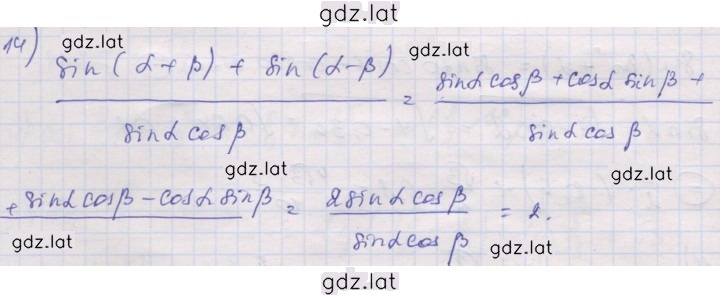 gdz.lat
14) gdz.lat gdz.lat
sin(α+β) + sin(α-β) / sinα cosβ = sinα cosβ + cosα sinβ + / sinα cosβ
gdz.lat gdz.lat
+ sinα cosβ - cosα sinβ = 2 sinα cosβ / sinα cosβ = 2.
gdz.lat gdz.lat
gdz.lat